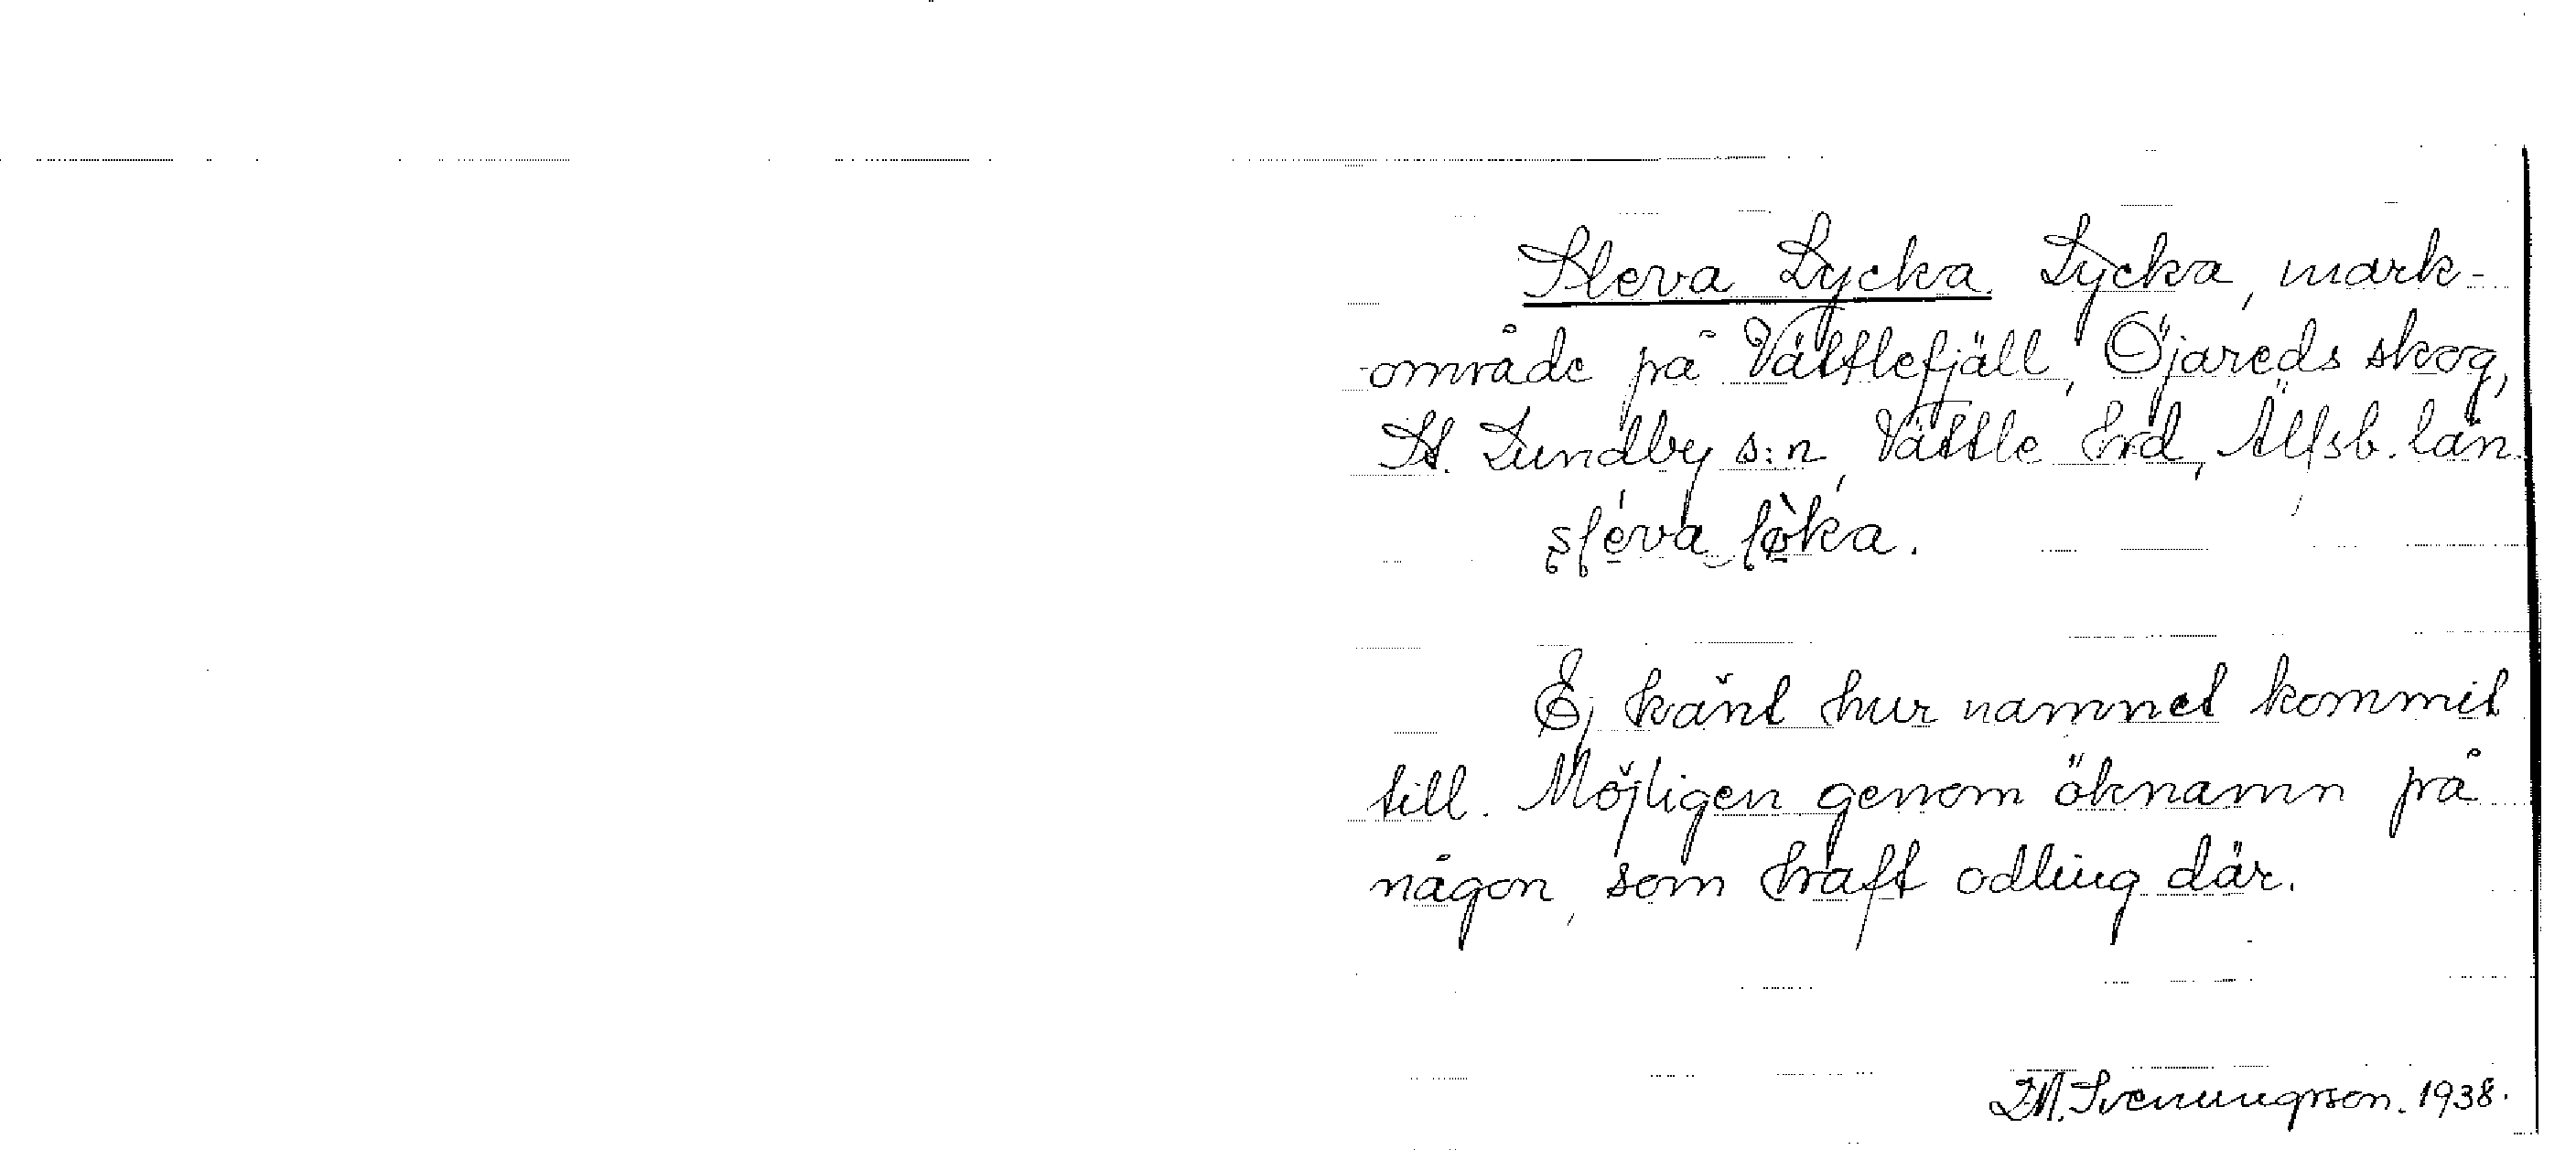 Sleva Lycka. Lycka, mark-
område på Vättlefjäll, Öjareds skog,
St. Lundby s:n, Vättle hrd, Älfsb. län.
sléva lø̀ka.
Ej känt hur namnet kommit
till. Möjligen genom öknamn på
någon, som haft odling där.
Svenungsson. 1938.